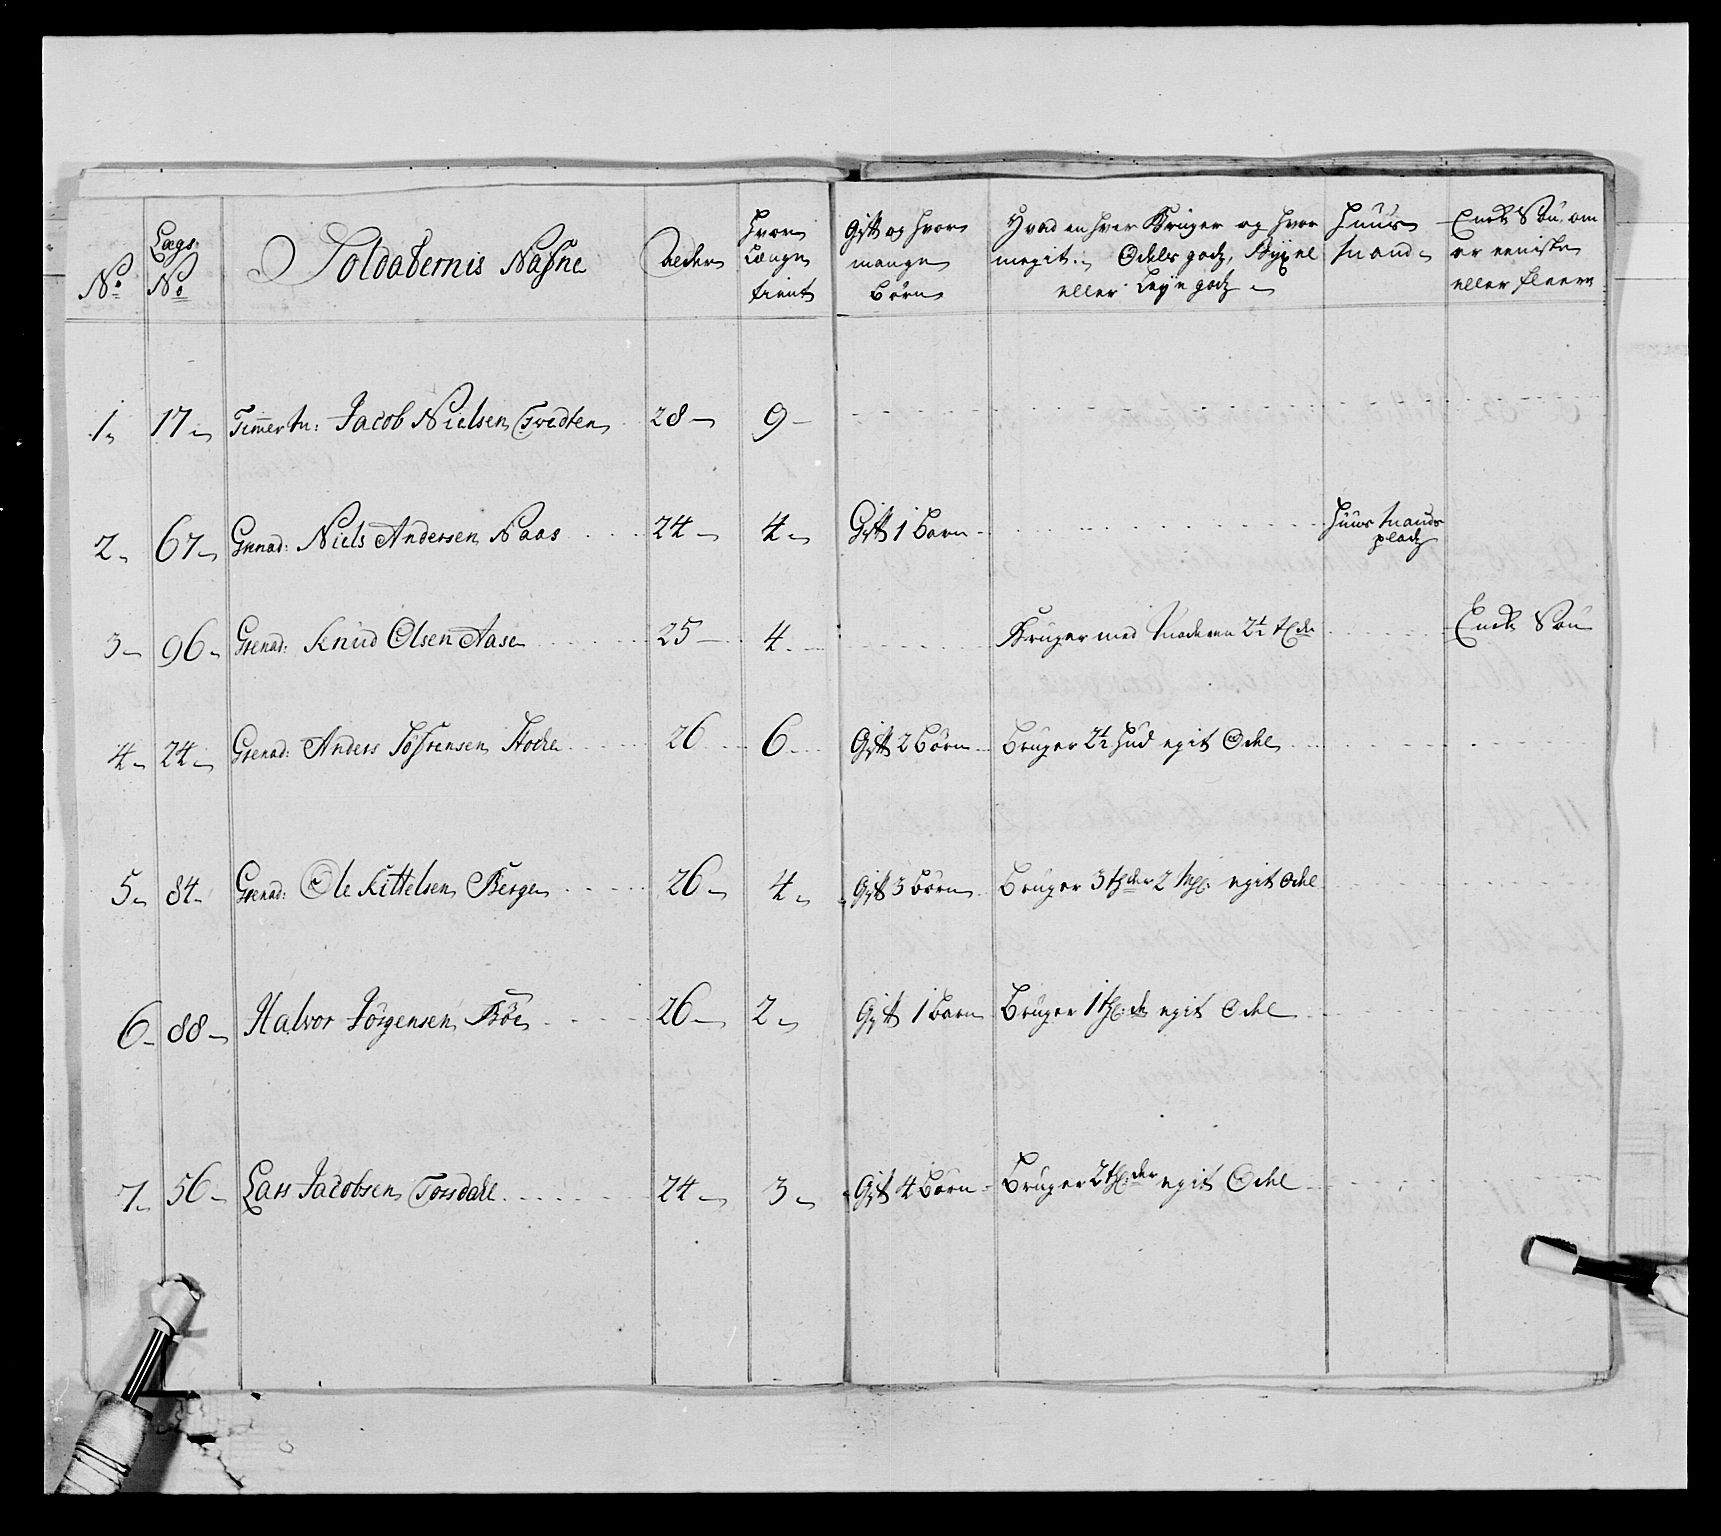 No
Lags No
Soldaternis Nafne
Alder
Hvor Længe tient
Gift og hvor mange Børn
Hvad en hver Bruger og hvor meget. Odels godz, Bÿxel eller Leÿe godz
Huus Mand
Enke Søn, om er eeniste eller fleere
1 17 Timmerm: Jacob Nielsen Tvedten 28 9
2 67 Grenad: Niels Andersen Naas 24 4 Gift 1 Barn Huus Mands pladz
3 96 Grenad: Knud Olsen Aase 25 4 Bruger med Moderen 2½ Enke Søn
4 24 Grenad: Anders Søfrensen 26 6 Gift 2 Børn Bruger 2½ Hud egit Odel
5 84 Grenad: Ole Kittelsen Berge 26 4 Gift 3 Børn Bruger 3 2 egit Odel
6 88 Halvor Jörgensen Bøe 26 2 Gift 1 Barn Bruger 1 egit Odel
7 56 Lars Jacobsen Torsdahl 24 3 Gift 4 Børn Bruger 2 egit Odel